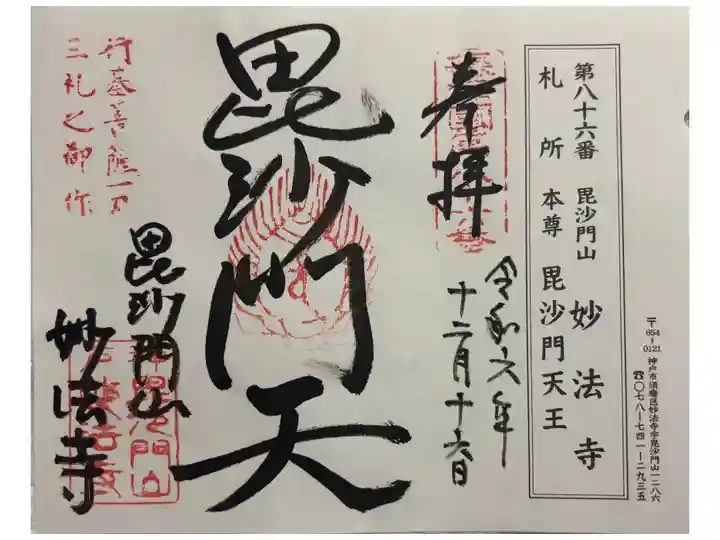 〒654-0121 神戸市須磨区妙法寺字毘沙門山一二八六
☎〇七八ー七四一ー二九三五
第八十六番 毘沙門山 妙法寺
札所本尊 毘沙門天王
奉拝
令和六年
十二月十六日
毘沙門天
毘沙門山
妙法寺
行基菩薩一刀
三礼之御作